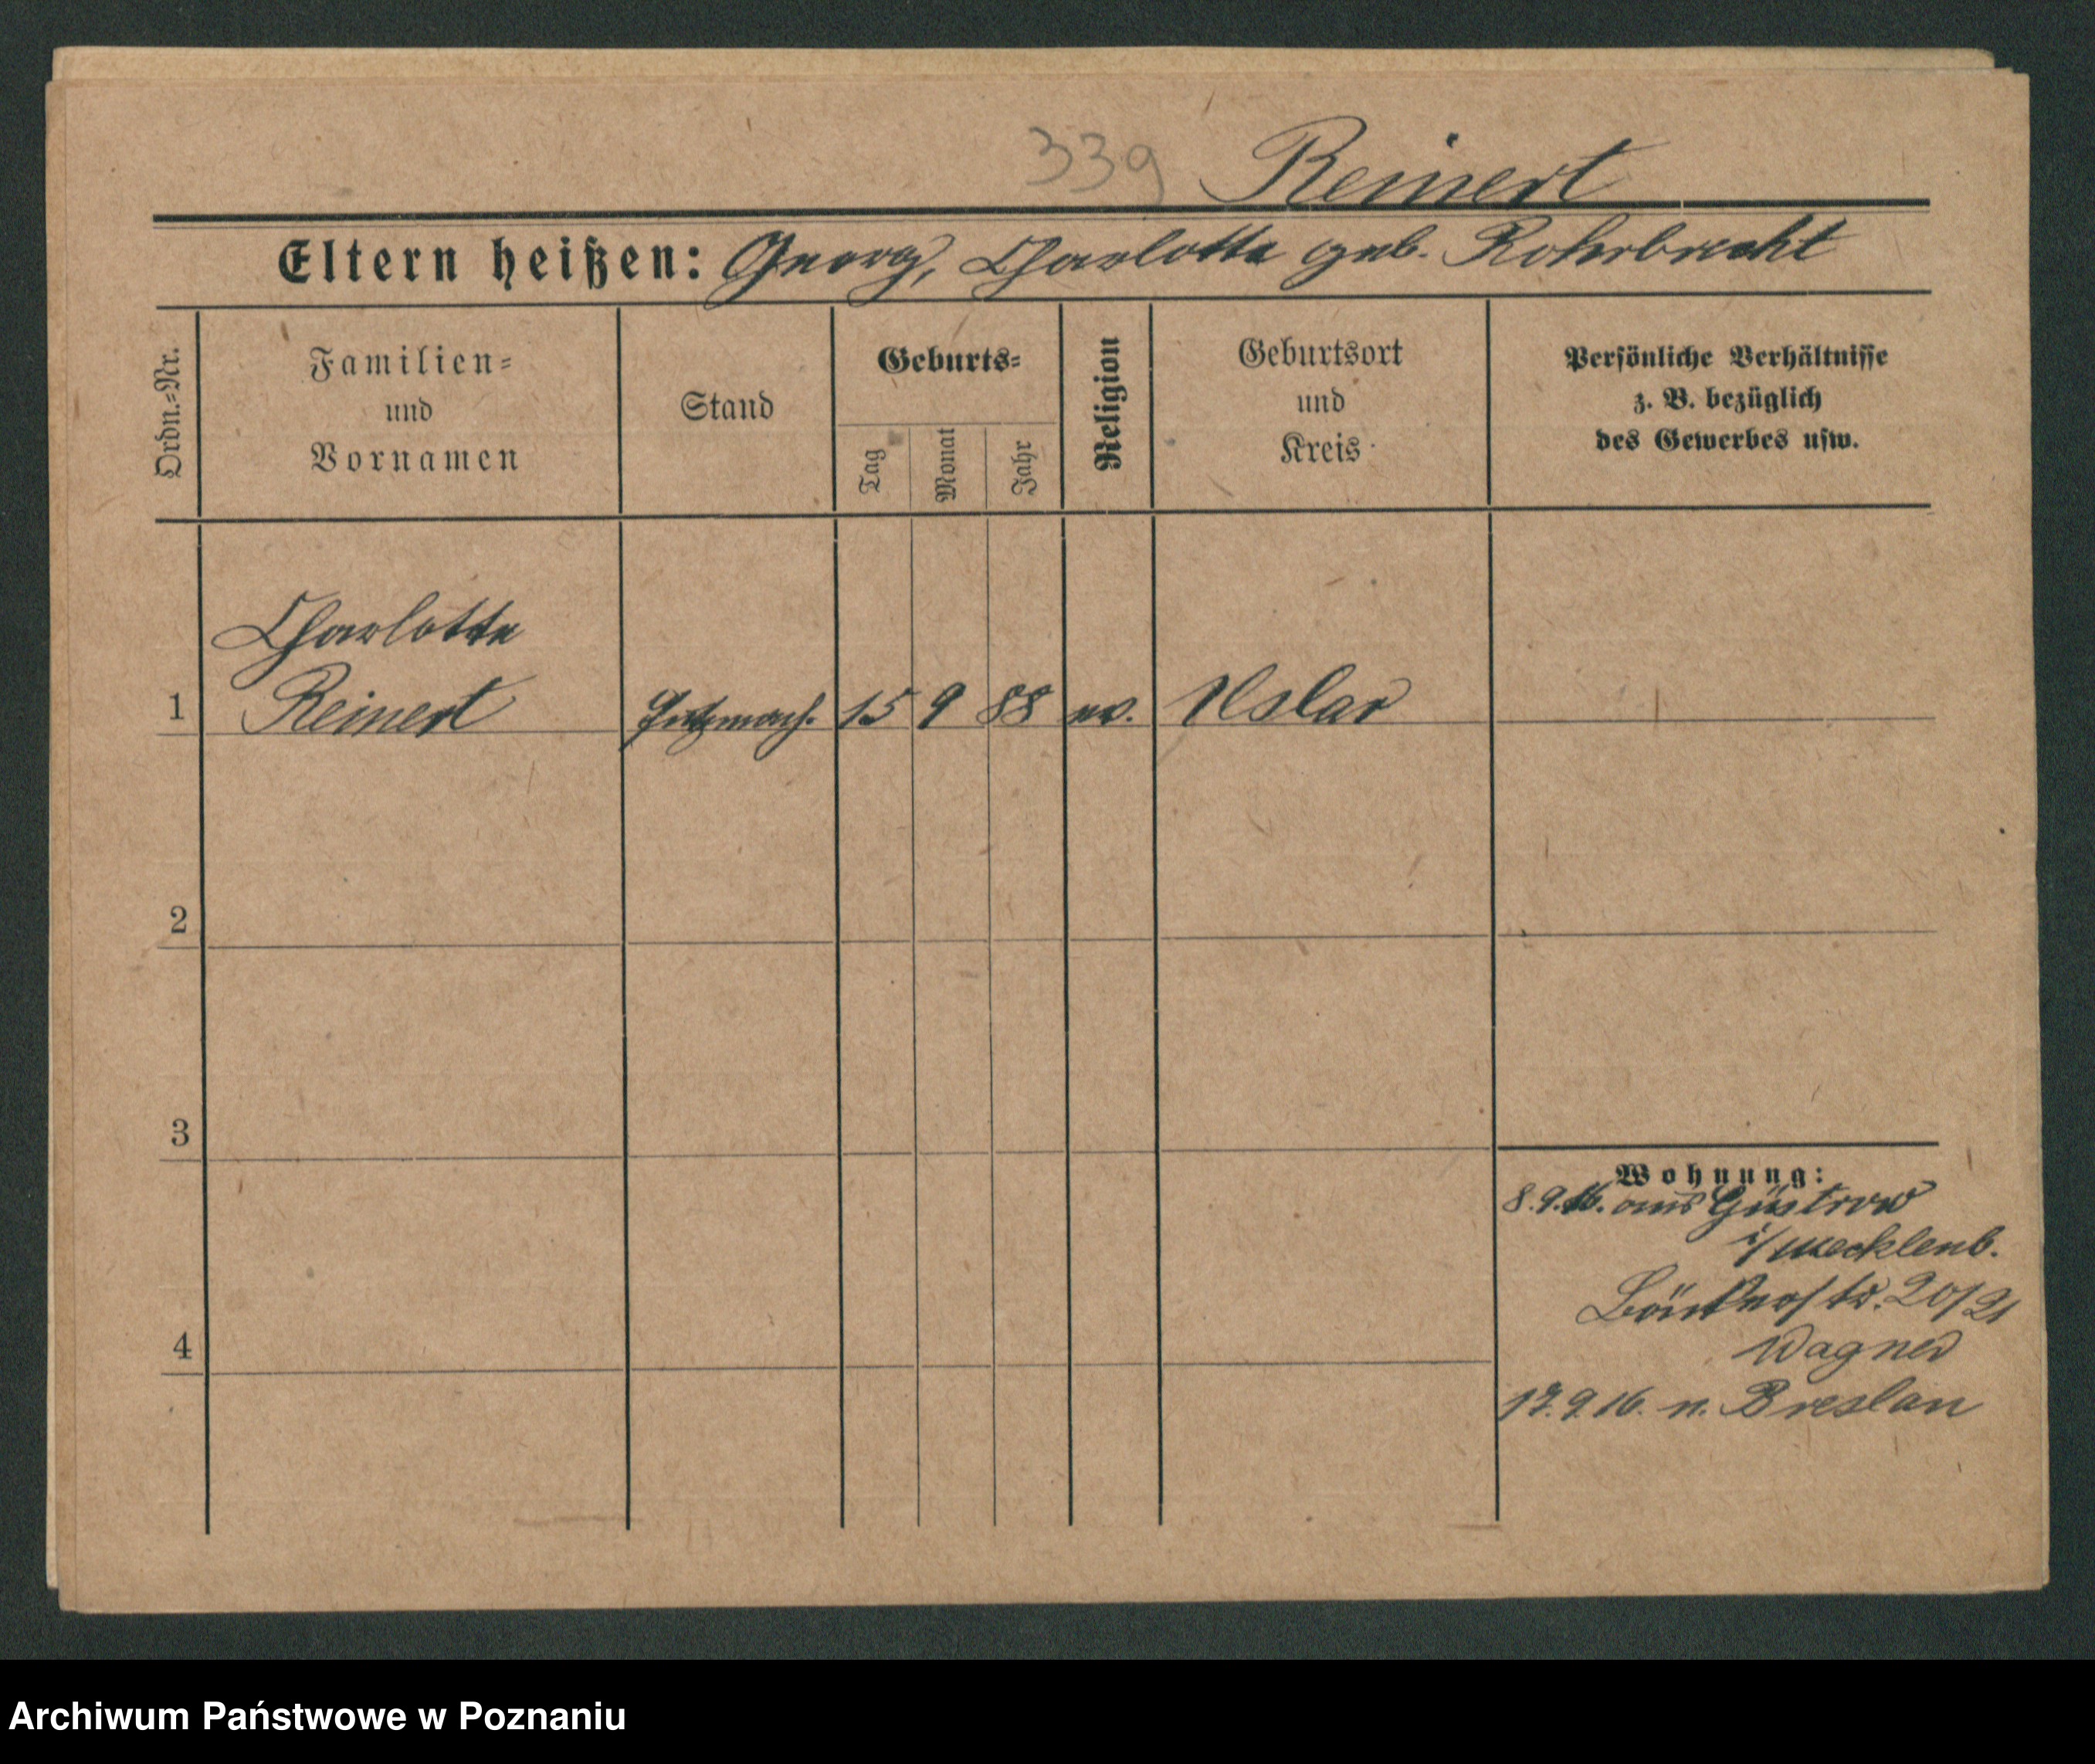 339 Reinert
Eltern heißen: Georg, Charlotte geb. Rohrbrecht
Ordn.-Nr.
Familien-
und
Vornamen
Stand
Geburts-
Tag
Monat
Jahr
Religion
Geburtsort
und
Kreis
Persönliche Verhältnisse
z. B. bezüglich
des Gewerbes usw.
Charlotte
1 Reinert Putzmach. 15 9 88 ev. Uslar
2
3
4
Wohnung:
8.9.16. aus Güstrow
i/Mecklenb.
str. 20/21
Wagner
17.9.16. n. Breslau
Archiwum Państwowe w Poznaniu